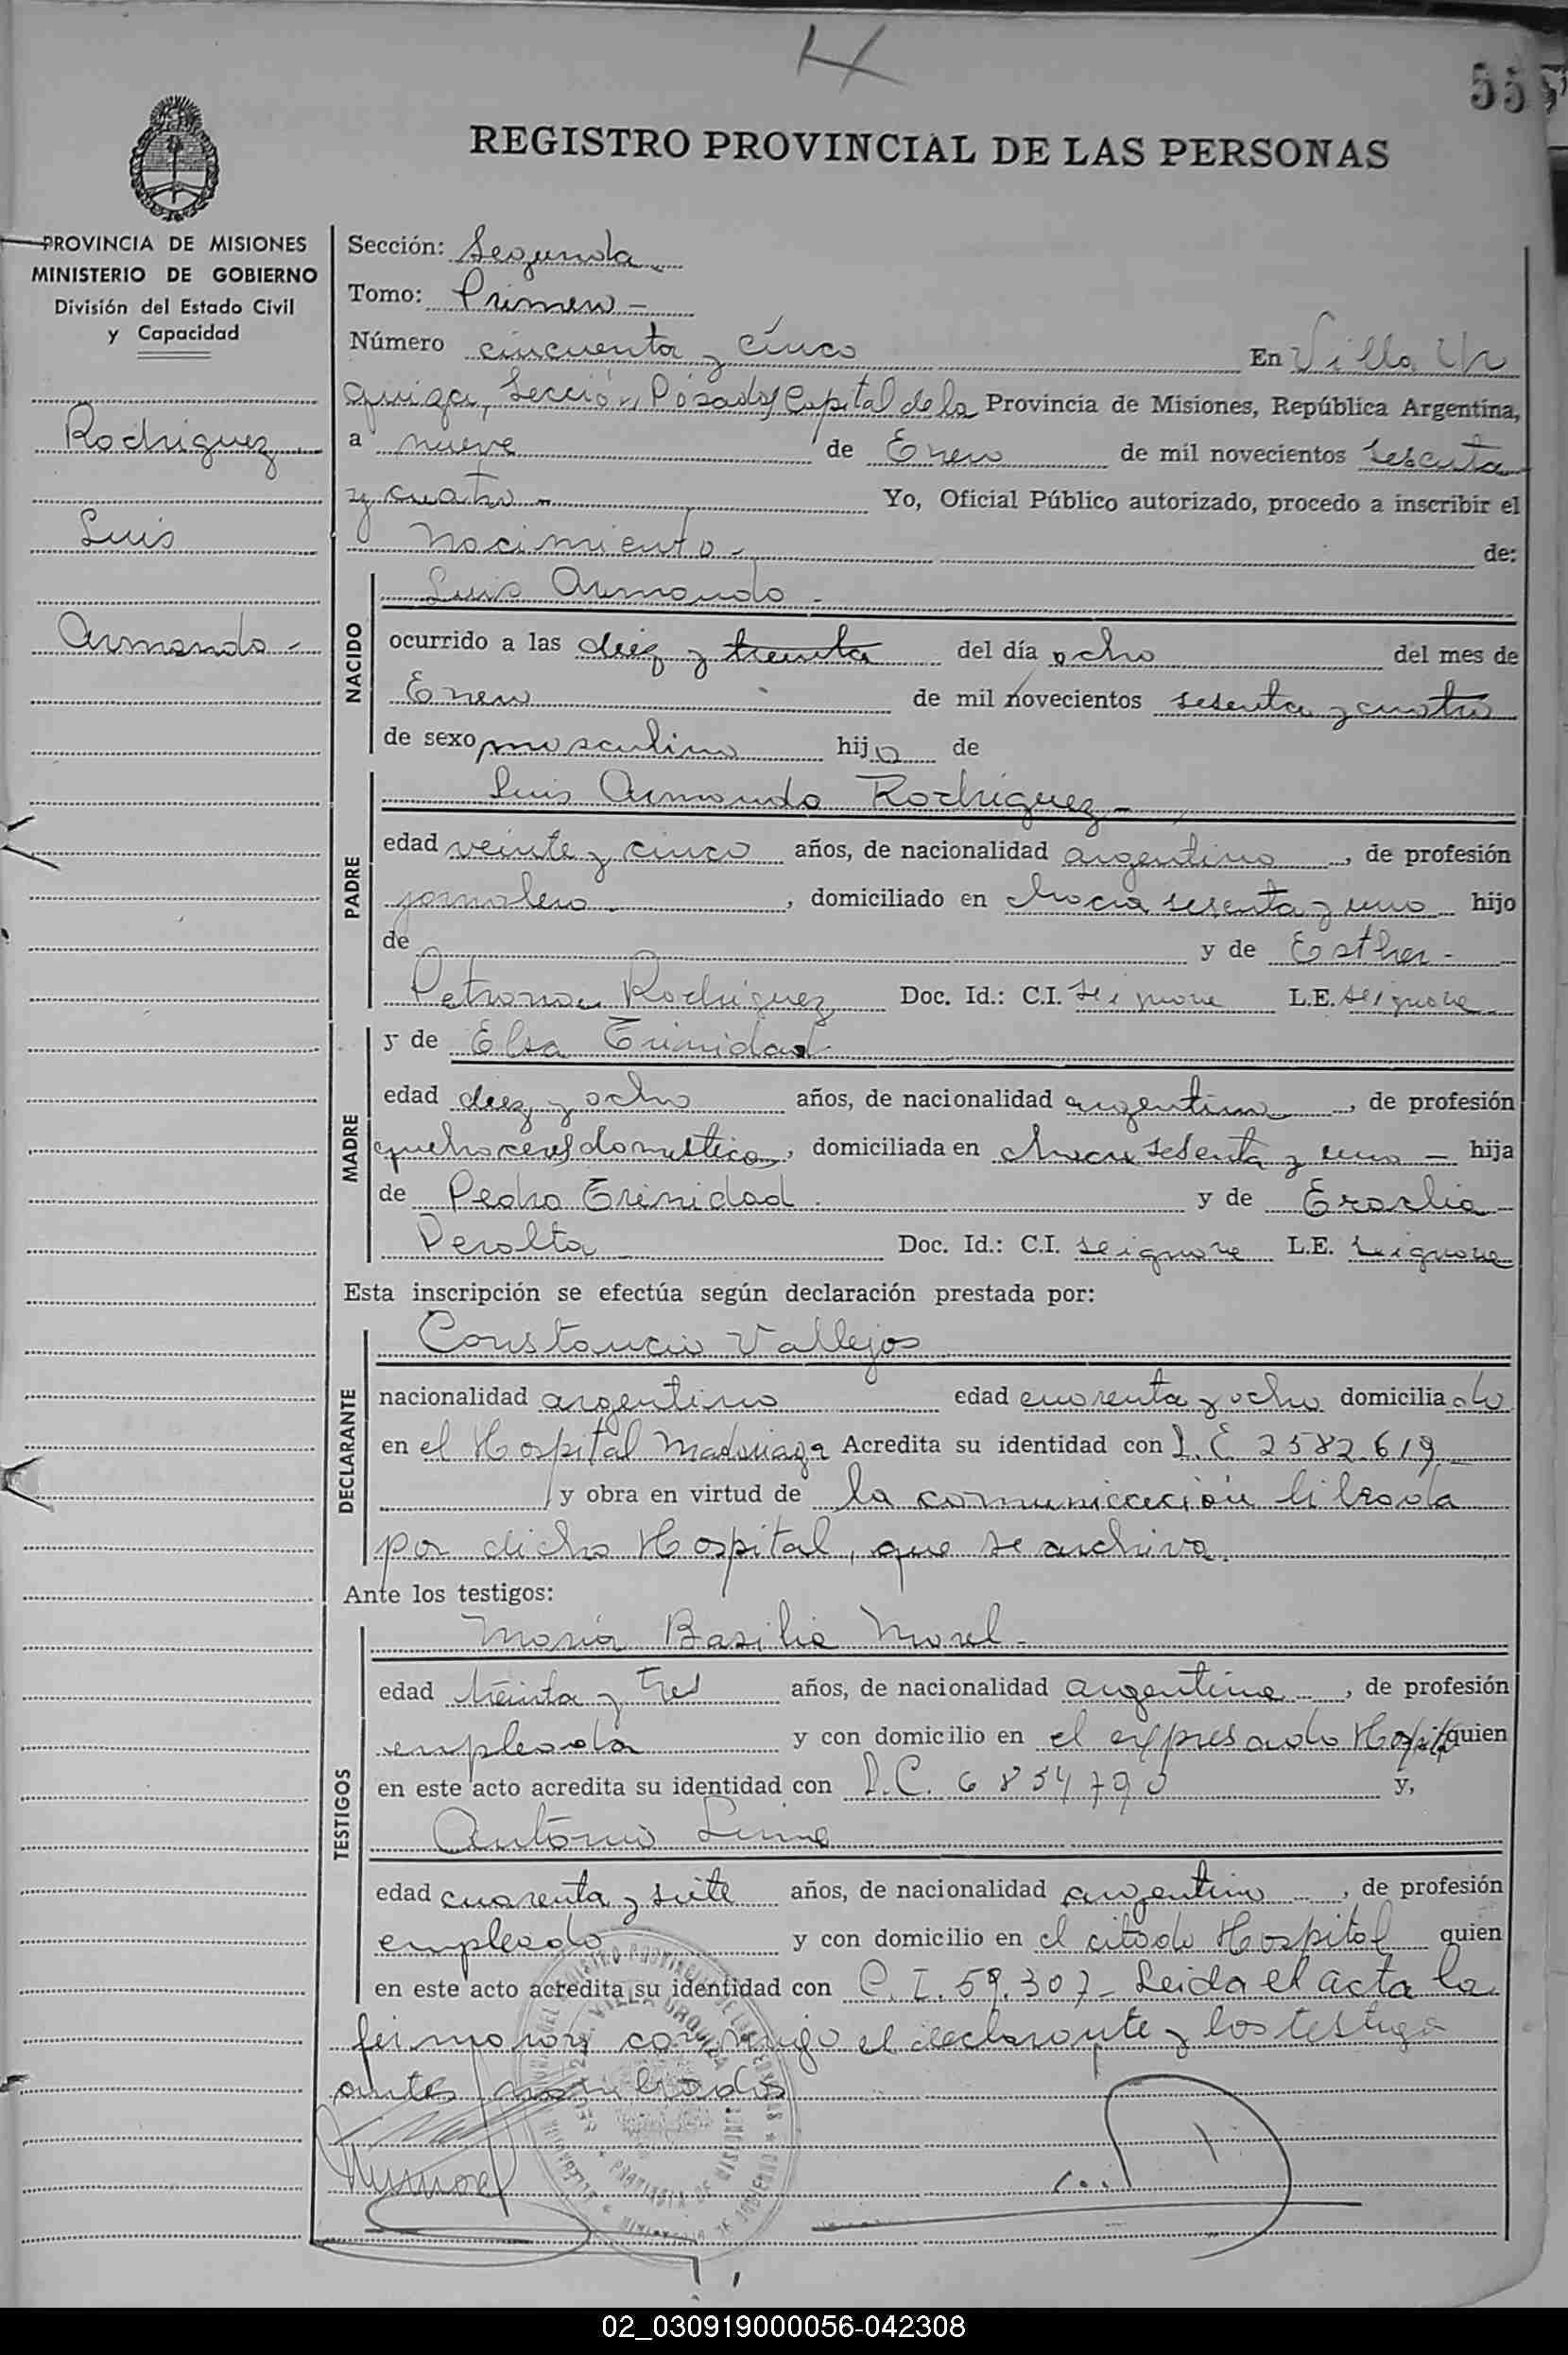 55
REGISTRO PROVINCIAL DE LAS PERSONAS
PROVINCIA DE MISIONES
MINISTERIO DE GOBIERNO
División del Estado Civil
y Capacidad
Rodriguez
Luis
Armando -
Sección: Segunda
Tomo: Primero -
Número cincuenta y cinco En Villa Ur
quiza, Sección, Posadas Capital de la Provincia de Misiones, República Argentina,
a nueve de Enero de mil novecientos sesenta
y cuatro - Yo, Oficial Público autorizado, procedo a inscribir el
Nacimiento - de:
NACIDO
Luis Armando -
ocurrido a las diez y treinta del día ocho del mes de
Enero de mil novecientos sesenta y cuatro
de sexo masculino hijo de
PADRE
Luis Armando Rodriguez -
edad veinte y cinco años, de nacionalidad argentino, de profesión
jornalero - , domiciliado en chacra sesenta y uno hijo
de y de Esther -
Petrona Rodriguez Doc. Id.: C.I. se ignora L.E. se ignora
MADRE
y de Elsa Trinidad
edad diez y ocho años, de nacionalidad argentina, de profesión
quehaceres domesticos, domiciliada en chacra sesenta y uno - hija
de Pedro Trinidad y de Eraclia -
Peralta Doc. Id.: C.I. se ignora L.E. se ignora
Esta inscripción se efectúa según declaración prestada por:
DECLARANTE
Constancio Vallejos
nacionalidad argentino edad cuarenta y ocho domiciliado
en el Hospital Madariaga Acredita su identidad con L.E 2582619
y obra en virtud de la comunicación librada
por dicho Hospital, que se archiva.
Ante los testigos:
TESTIGOS
María Basilia Morel -
edad treinta y tres años, de nacionalidad argentina, de profesión
empleada y con domicilio en el expresado Hospital quien
en este acto acredita su identidad con L.C. 6854790 y,
Antonio
edad cuarenta y siete años, de nacionalidad argentino, de profesión
empleado y con domicilio en el citado Hospital quien
en este acto acredita su identidad con C.I. 59.307 - Leida el acta la
firmaron conmigo el declarante y los testigos
antes nombrados
VILLA URQUIZA
02_030919000056-042308